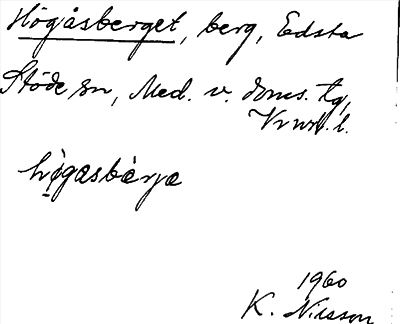 Högåsberget, berg, Edsta
Stöde sn, Med. v. doms. tg,
Vnrl. l.
hø̀gasbærjæ
1960
K. Nilsson